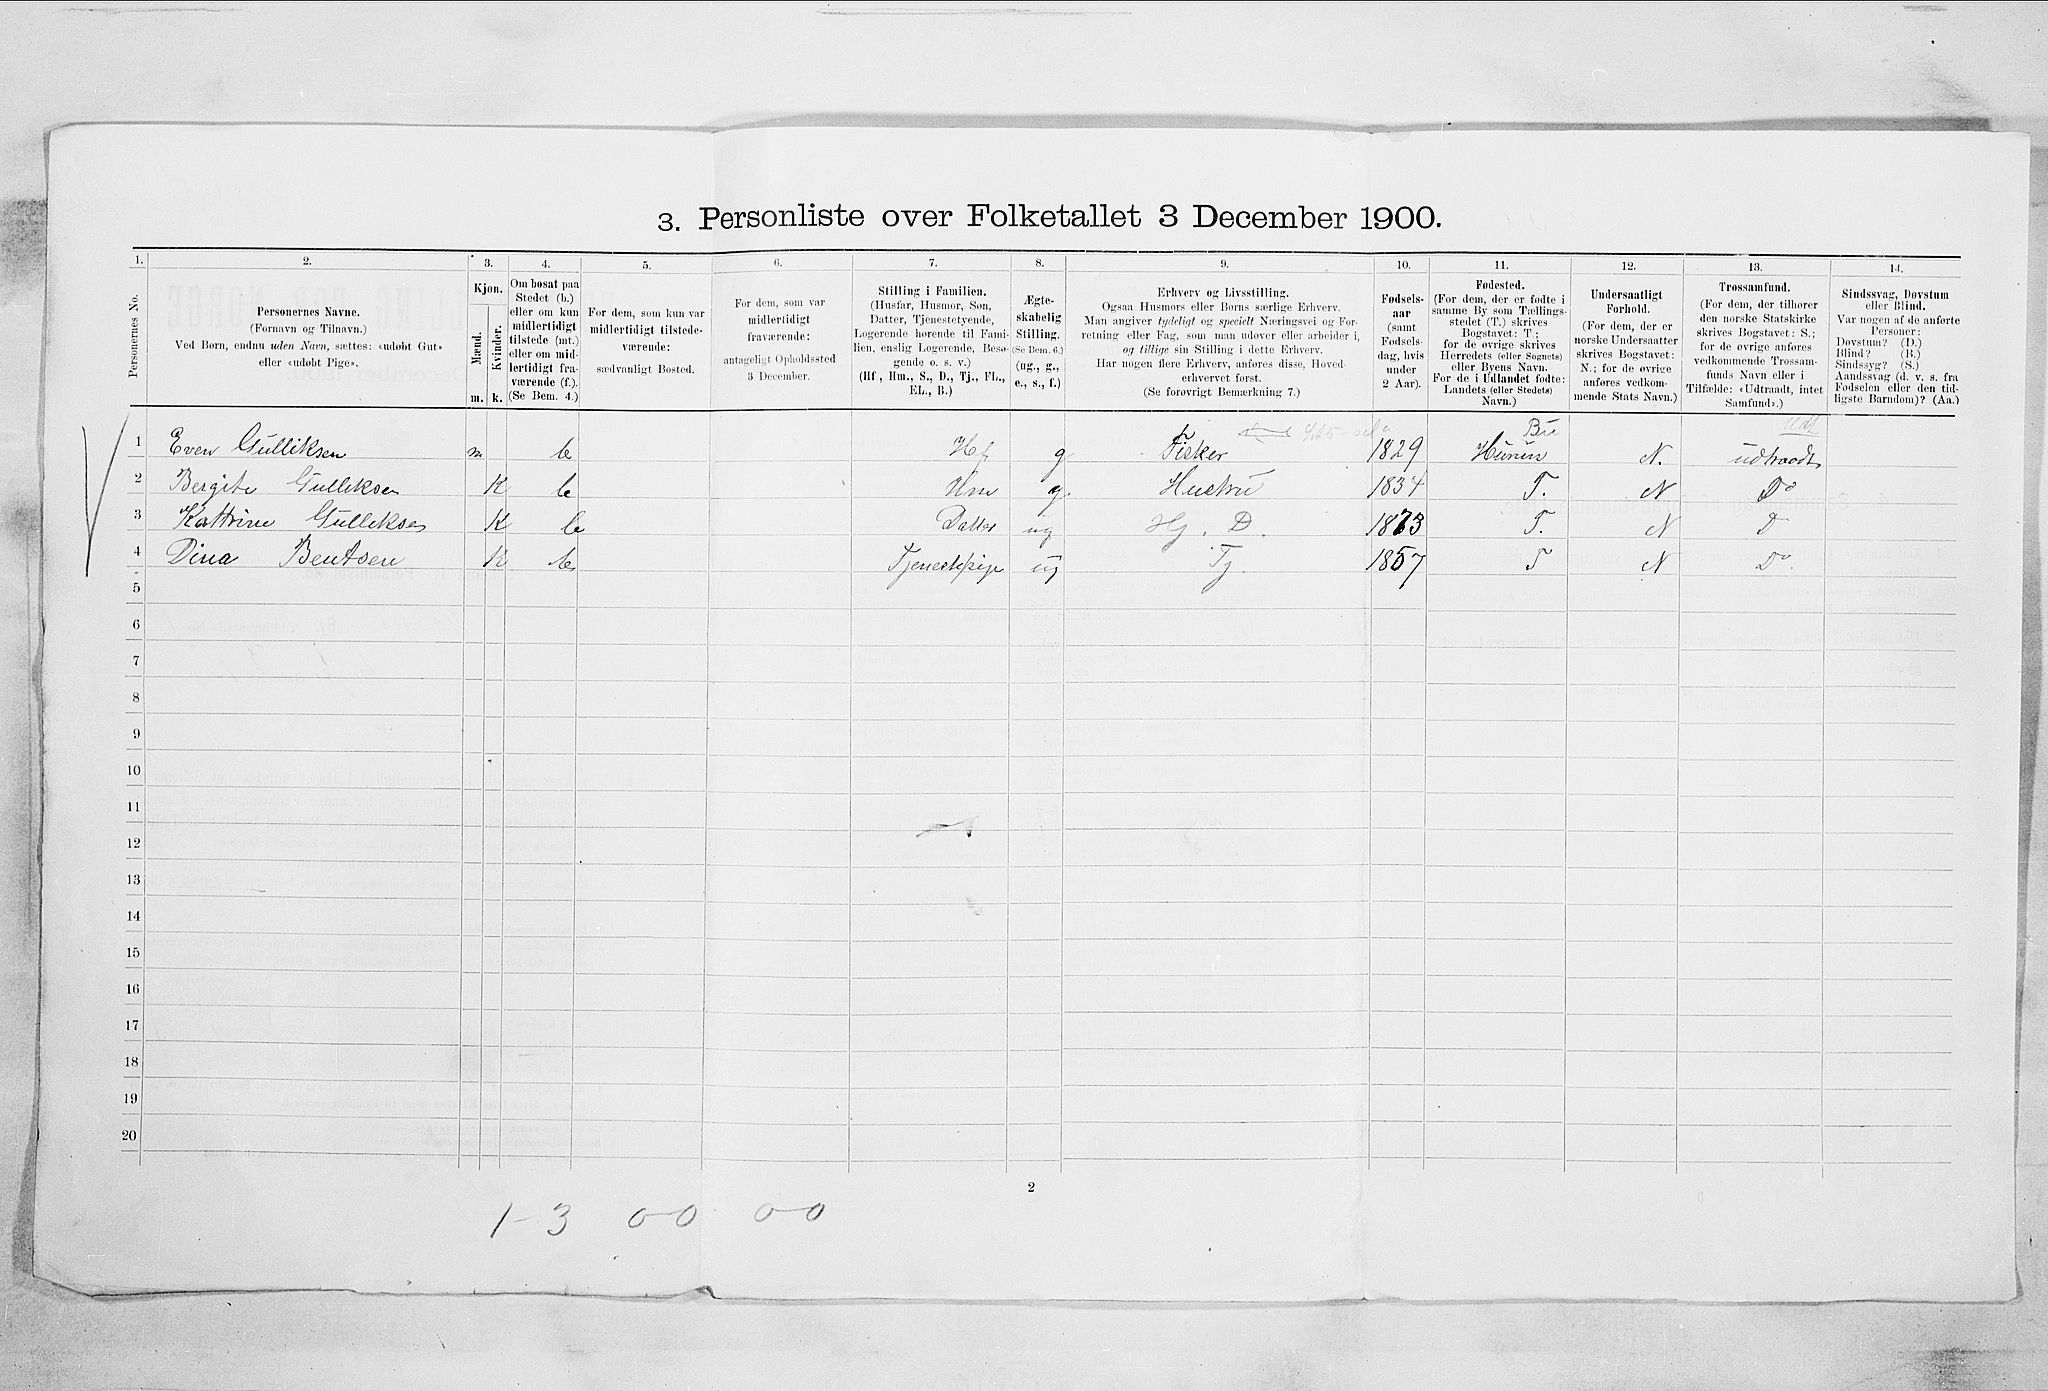 3. Personliste over Folketallet 3 December 1900.
1. 2. 3. 4. 5. 6. 7. 8. 9. 10. 11. 12. 13. 14.
Personernes No.
Personernes Navne.
(Fornavn og Tilnavn.)
Ved Børn, endnu uden Navn, sættes: «udøbt Gut»
eller «udøbt Pige».
Kjøn.
Mænd.
Kvinder.
m. k.
Om bosat paa
Stedet (b.)
eller om kun
midlertidigt
tilstede (mt.)
eller om mid-
lertidigt fra-
værende (f.).
(Se Bem. 4.)
For dem, som kun var
midlertidigt tilstede-
værende:
sædvanligt Bosted.
For dem, som var
midlertidigt
fraværende:
antageligt Opholdssted
3 December.
Stilling i Familien.
(Husfar, Husmor, Søn,
Datter, Tjenestetyende,
Logerende hørende til Fami-
lien, enslig Logerende, Besø-
gende o. s. v.)
(Hf., Hm., S., D., Tj., FL.,
EL., B.)
Ægte-
skabelig
Stilling.
(Se Bem. 6.)
(ug., g.,
e., s., f.)
Erhverv og Livsstilling.
Ogsaa Husmors eller Børns særlige Erhverv.
Man angiver tydeligt og specielt Næringsvei og For-
retning eller Fag, som man udøver eller arbeider i,
og tillige sin Stilling i dette Erhverv.
Har nogen flere Erhverv, anføres disse, Hoved-
erhvervet først.
(Se forøvrigt Bemærkning 7.)
Fødsels-
aar
(samt
Fødsels-
dag, hvis
under
2 Aar).
Fødested.
(For dem, der er fødte i
samme By som Tællings-
stedet (T.) skrives
Bogstavet: T.;
for de øvrige skrives
Herredets (eller Sognets)
eller Byens Navn.
For de i Udlandet fødte:
Landets (eller Stedets)
Navn.)
Undersaatligt
Forhold.
(For dem, der er
norske Undersaatter
skrives Bogstavet:
N.; for de øvrige
anføres vedkom-
mende Stats Navn.)
Trossamfund.
(For dem, der tilhører
den norske Statskirke
skrives Bogstavet: S.;
for de øvrige anføres
vedkommende Trossam-
funds Navn eller i
Tilfælde: «Udtraadt, intet
Samfund».)
Sindssvag, Døvstum
eller Blind.
Var nogen af de anførte
Personer:
Døvstum? (D.)
Blind? (B.)
Sindssyg? (S.)
Aandssvag (d. v. s. fra
Fødselen eller den tid-
ligste Barndom)? (Aa.)
Bu Udt
1 Even Gulliksen m b Hf g Fisker 1829 N. udtraadt
2 Bergite Gulliksen K b Hm g. Hustru 1834 T. N Do
3 Kattrine Gulliksen K b Datter ug Hj. D. 1873 T. N D
4 Dina Bentsen K b Tjenestepige ug Tj. 1857 T N Do.
5
6
7
8
9
10
11
12
13
14
15
16
17
18
19
20
2
1-3 00 00